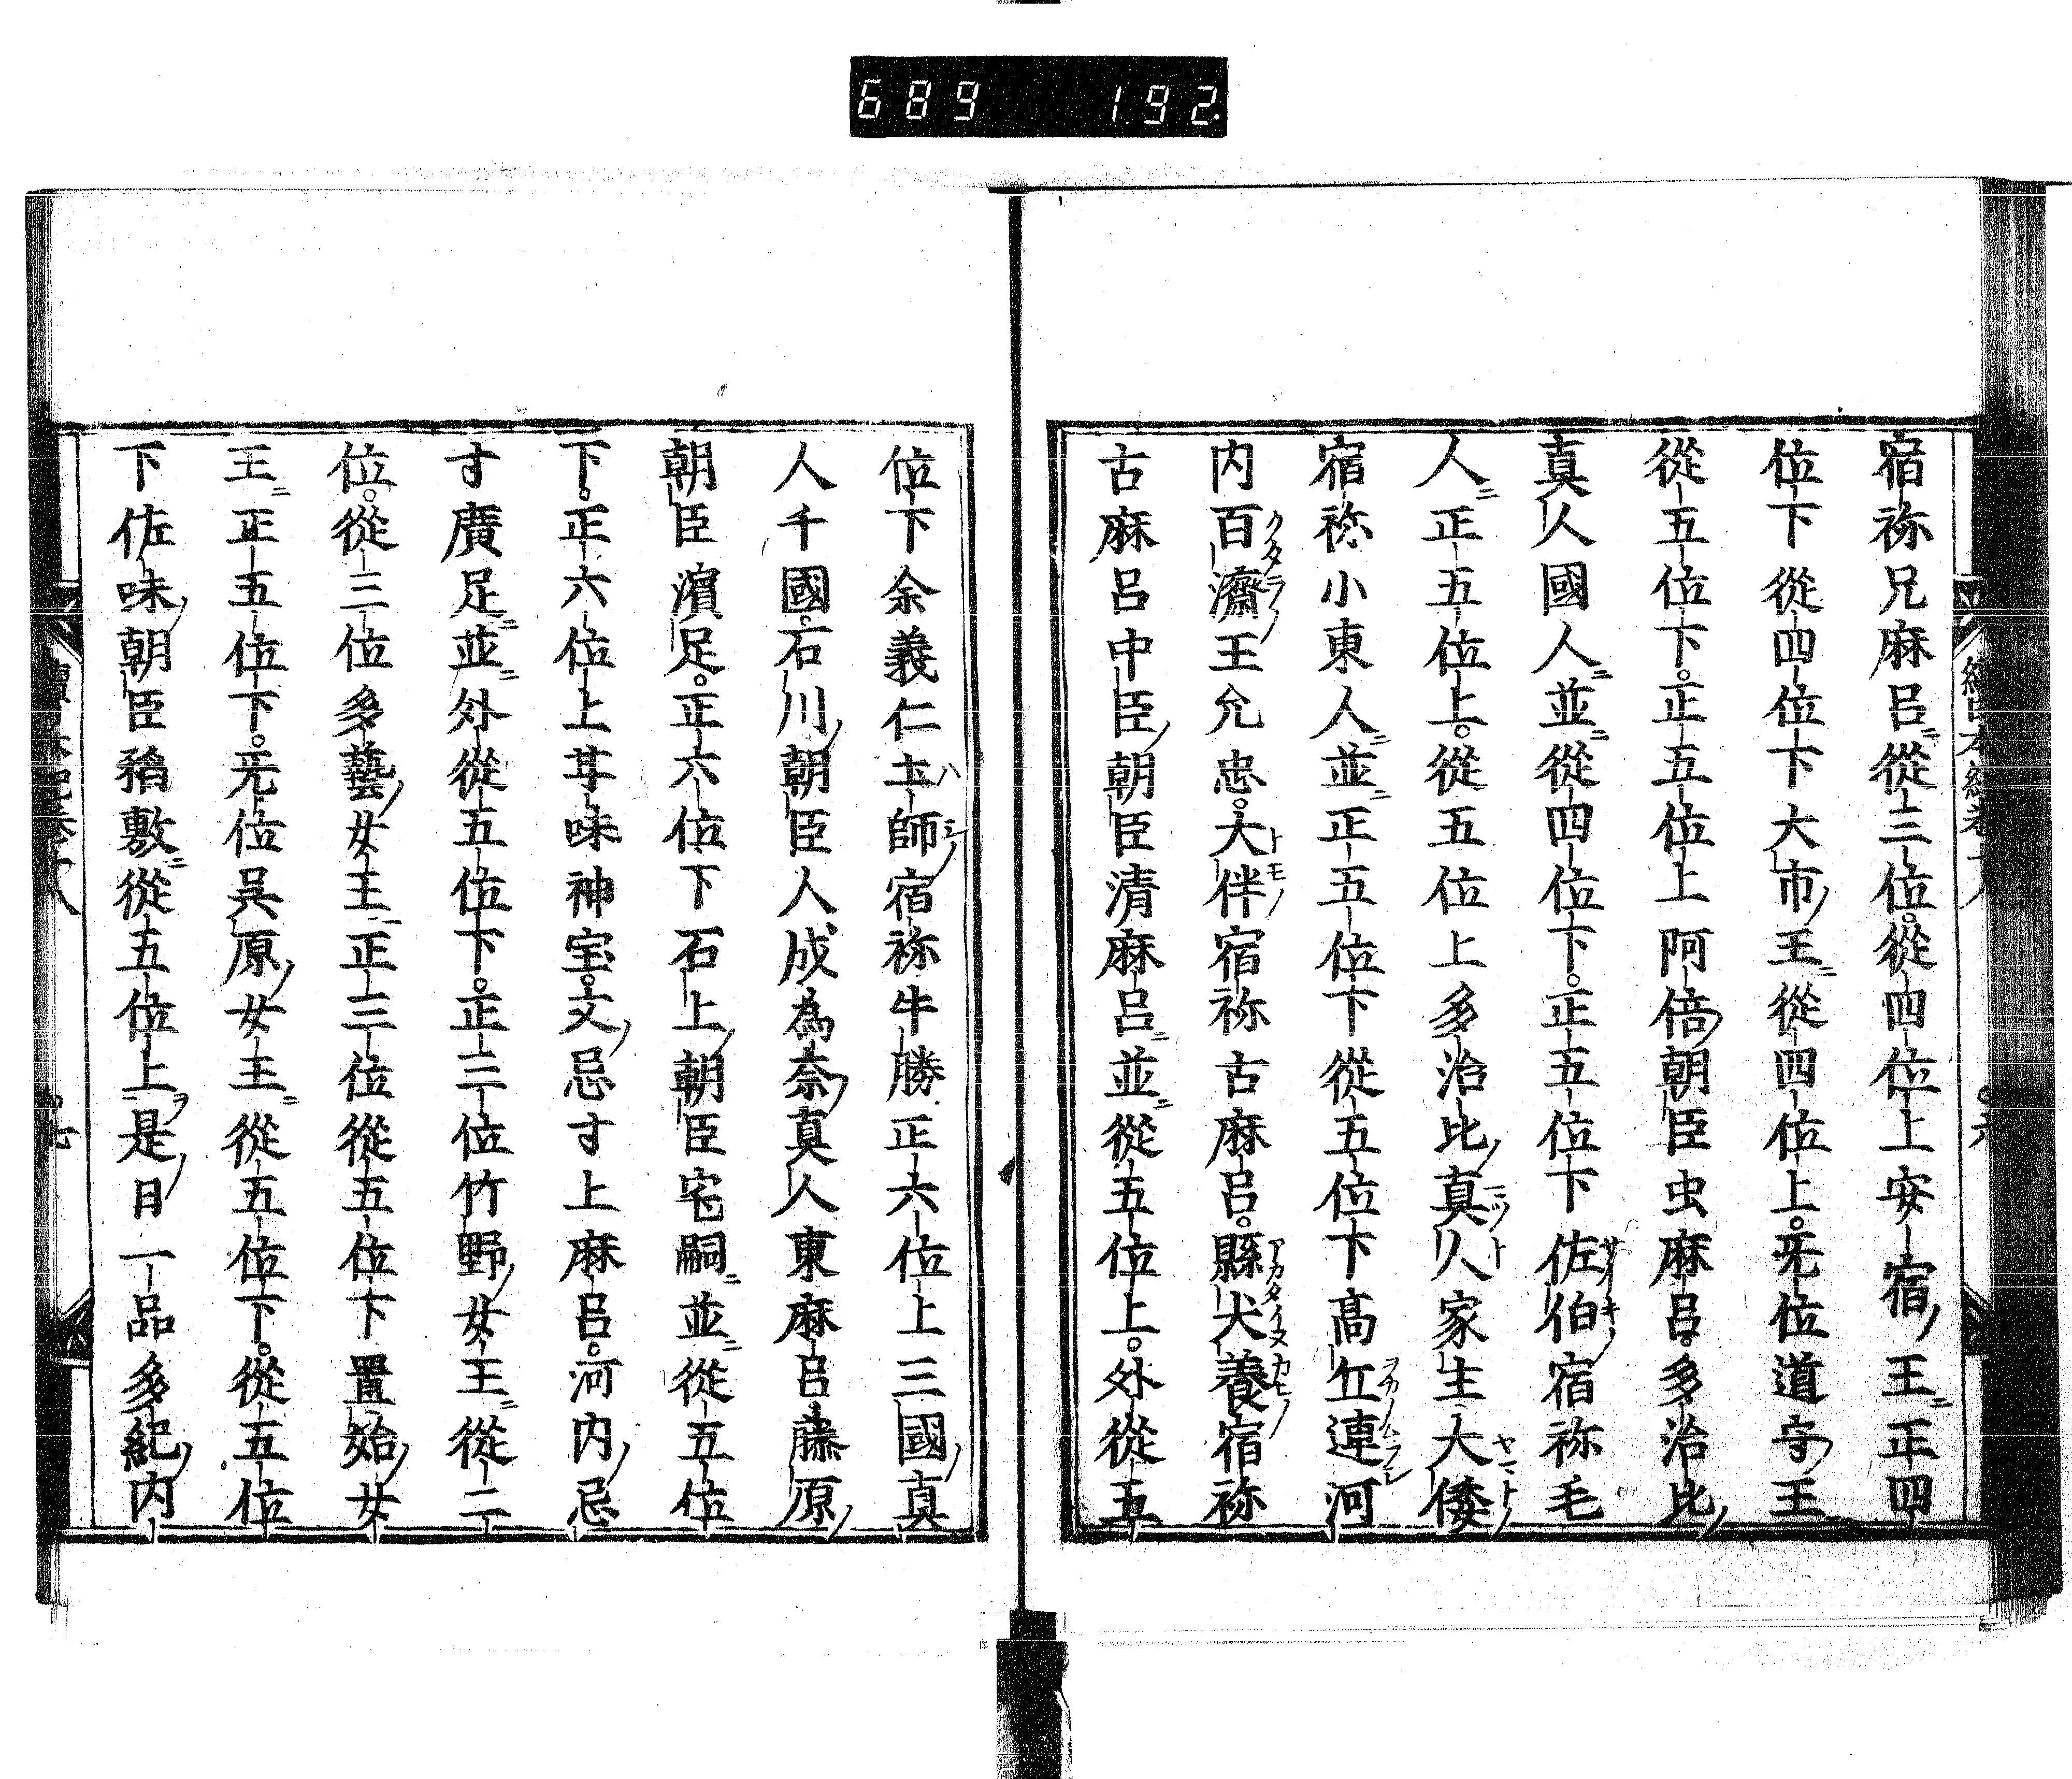 689 192.
宿祢兄麻呂從三位。從四位上安宿王正四
位下從四位下大市王從四位上。无位道守王
從五位下。正五位上阿倍朝臣虫麻呂。多治比
真人國人並從四位下。正五位下佐伯宿祢毛
人正五位上。從五位上多治比真人家主大倭
宿祢小東人並正五位下從五位下高丘連河
内百濟王允忠。大伴宿祢古麻呂。縣犬養宿祢
古麻呂中臣朝臣清麻呂並從五位上。外從五
位下余義仁土師宿祢牛勝正六位上三國真
人千國。石川朝臣人成為奈真人東麻呂。藤原
朝臣濵足。正六位下石上朝臣宅嗣並從五位
下。正六位上茸味神宝。文忌寸上麻呂。河内忌
寸廣足並外從五位下。正三位竹野女王從二
位。從三位多藝女王正三位從五位下置始女
王正五位下。无位呉原女王從五位下。從五位
下佐味朝臣稲敷從五位上是日一品多紀内